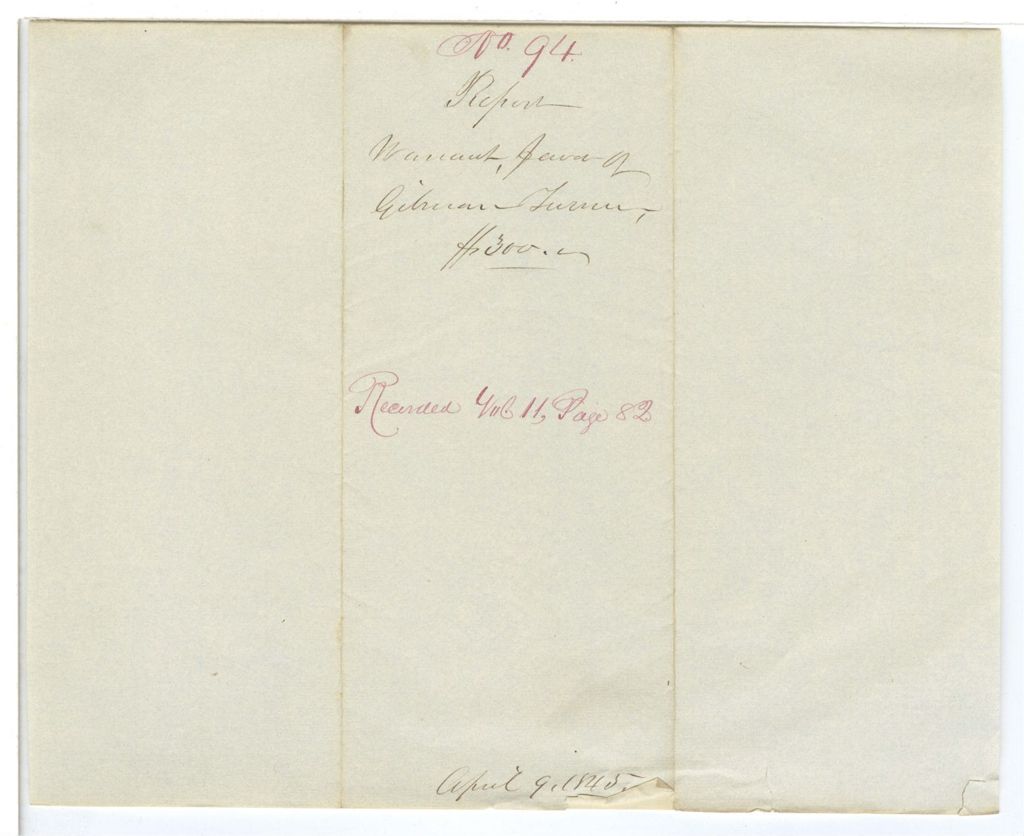 No. 94.
Report
Warrant, favor of
Gilman Turner,
$300.
Recorded Vol 11, Page 82
April 9. 1845.